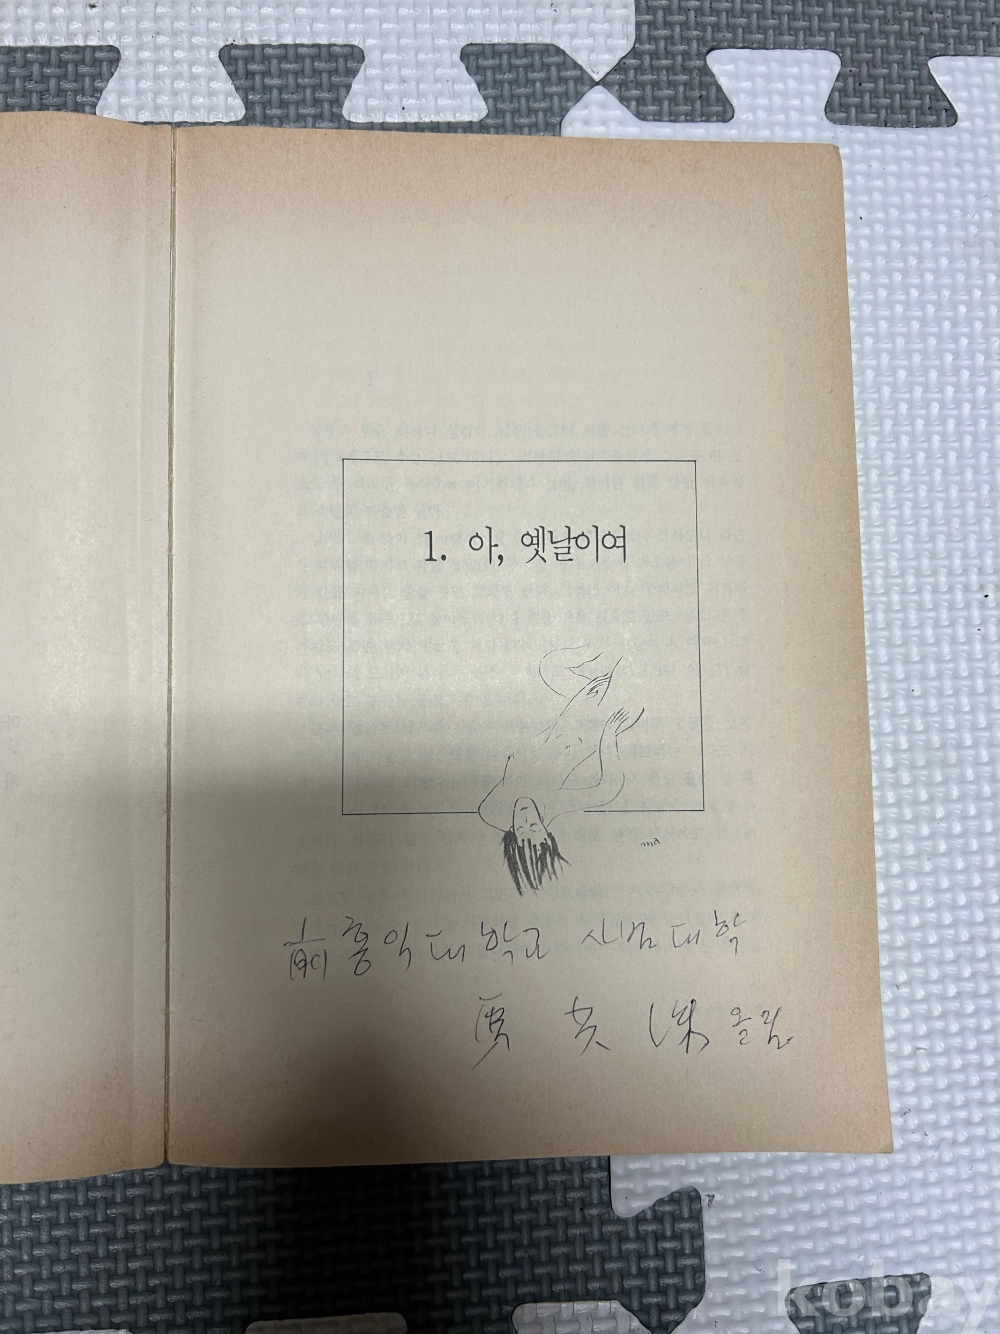 1. 아, 옛날이여
ma
前 홍익대학교 사범대학
英 洙 올림.
kobay